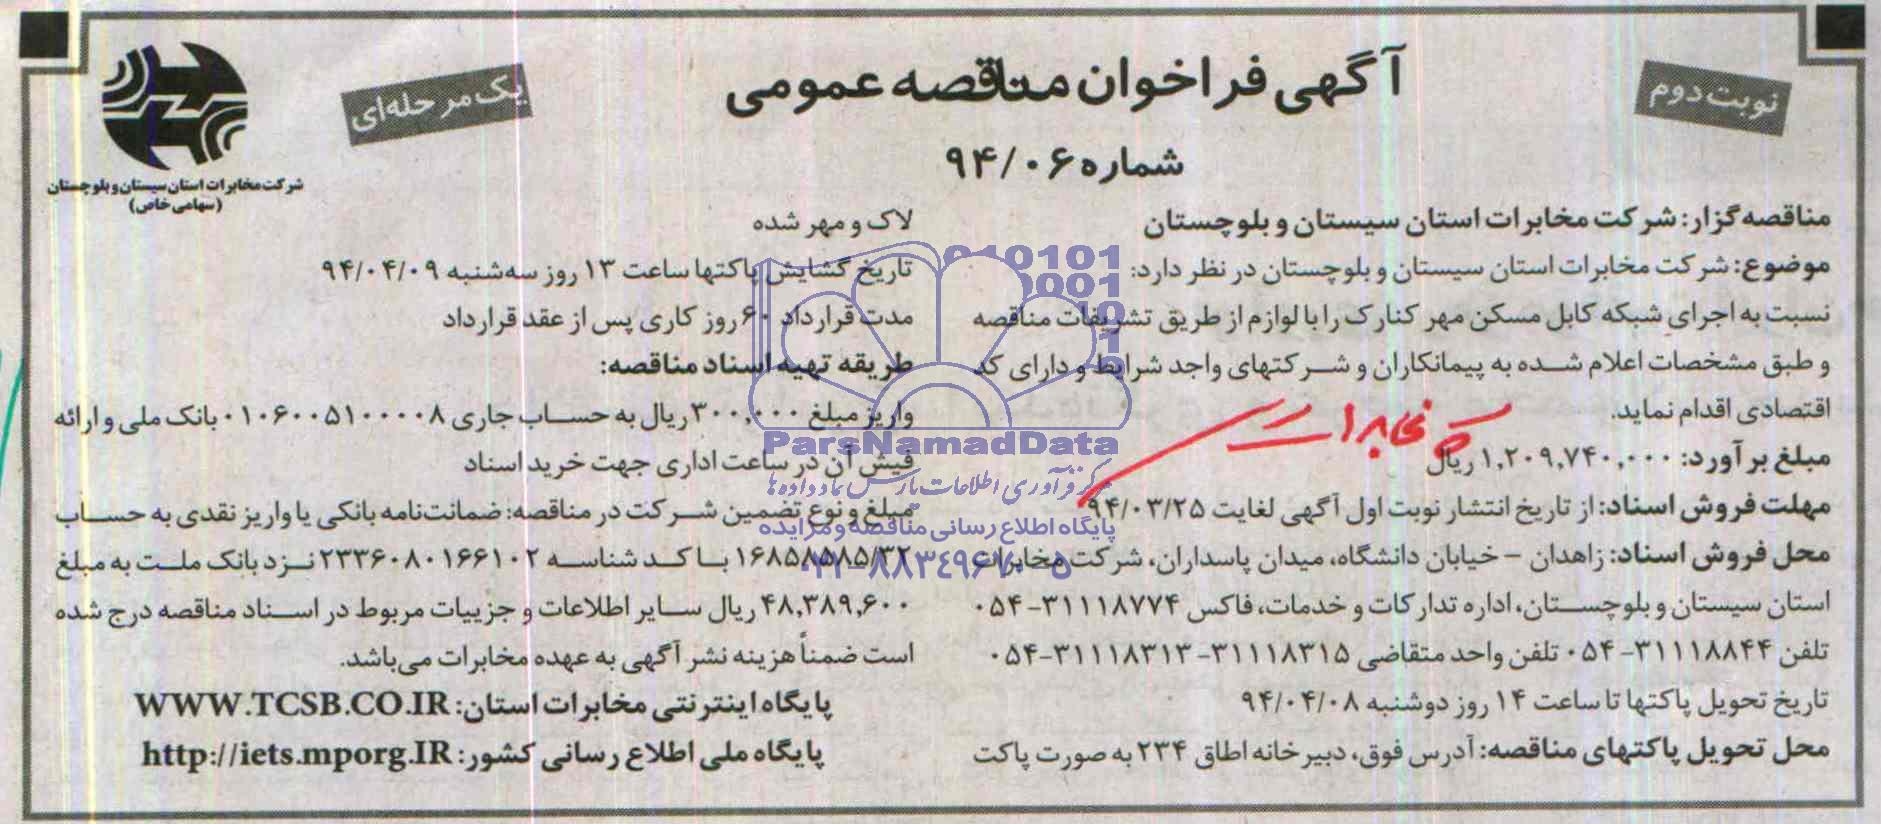 نوبت دوم
آگهی فراخوان مناقصه عمومی
یک مرحله‌ای
شماره ۹۴/۰۶
شرکت مخابرات استان سیستان و بلوچستان
(سهامی خاص)
مناقصه گزار: شرکت مخابرات استان سیستان و بلوچستان
موضوع: شرکت مخابرات استان سیستان و بلوچستان در نظر دارد:
نسبت به اجرای شبکه کابل مسکن مهر کنارک را با لوازم از طریق تشریفات مناقصه
و طبق مشخصات اعلام شده به پیمانکاران و شرکتهای واجد شرایط و دارای کد
اقتصادی اقدام نماید.
مبلغ برآورد: ۱,۲۰۹,۷۴۰,۰۰۰ ریال
مهلت فروش اسناد: از تاریخ انتشار نوبت اول آگهی لغایت ۹۴/۰۳/۲۵
محل فروش اسناد: زاهدان – خیابان دانشگاه، میدان پاسداران، شرکت مخابرات
استان سیستان و بلوچستان، اداره تدارکات و خدمات، فاکس ۳۱۱۱۸۷۷۴-۰۵۴
تلفن ۳۱۱۱۸۸۴۴-۰۵۴ تلفن واحد متقاضی ۳۱۱۱۸۳۱۵-۳۱۱۱۸۳۱۳-۰۵۴
تاریخ تحویل پاکتها تا ساعت ۱۴ روز دوشنبه ۹۴/۰۴/۰۸
محل تحویل پاکتهای مناقصه: آدرس فوق، دبیرخانه اطاق ۲۳۴ به صورت پاکت
لاک و مهر شده
تاریخ گشایش پاکتها ساعت ۱۳ روز سه‌شنبه ۹۴/۰۴/۰۹
مدت قرارداد ۶۰ روز کاری پس از عقد قرارداد
طریقه تهیه اسناد مناقصه:
واریز مبلغ ۳۰۰,۰۰۰ ریال به حساب جاری ۰۱۰۶۰۰۵۱۰۰۰۰۸ بانک ملی و ارائه
فیش آن در ساعت اداری جهت خرید اسناد
مبلغ و نوع تضمین شرکت در مناقصه: ضمانت‌نامه بانکی یا واریز نقدی به حساب
۱۶۸۵۸۵۸۵/۳۲ با کد شناسه ۲۳۳۶۰۸۰۱۶۶۱۰۲ نزد بانک ملت به مبلغ
۴۸,۳۸۹,۶۰۰ ریال سایر اطلاعات و جزییات مربوط در اسناد مناقصه درج شده
است ضمناً هزینه نشر آگهی به عهده مخابرات می‌باشد.
پایگاه اینترنتی مخابرات استان: WWW.TCSB.CO.IR
پایگاه ملی اطلاع رسانی کشور: http://iets.mporg.IR
ParsNamadData
مرکز فرآوری اطلاعات پارس نماد داده‌ها
پایگاه اطلاع رسانی مناقصه و مزایده
۰۲۱-۸۸۳۴۹۶۷۰-۵